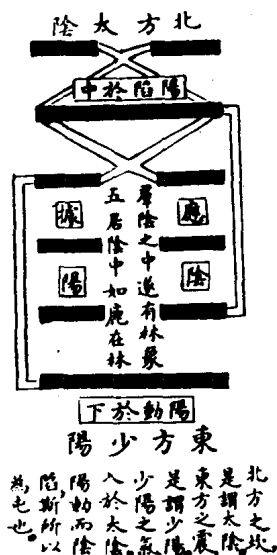 北方太陰
陽陷於中
應陰
羣陰之中遂有林象
五居陰中如鹿在林
據陽
陽動於下
東方少陽
北方之坎
是謂太陰
東方之震
是謂少陽
少陽之氣
入於太陰
陽動而陰
陷斯所以
為屯也。